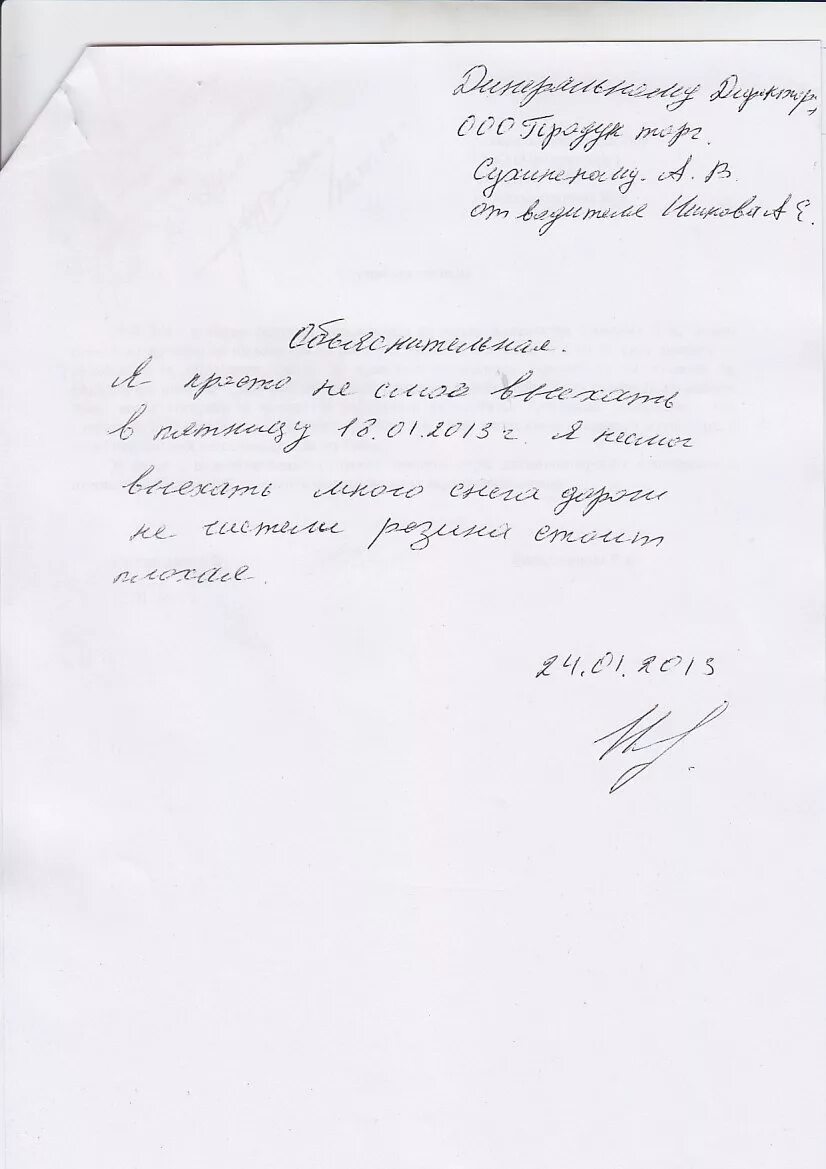 Динеральному Директору
ООО Продук торг.
Сухинскому. А. В.
от водителя Ишкова А Е.
Объяснительная.
Я просто не смог выехать
в пятницу 18.01.2013 г. Я несмог
выехать много снега дороги
не чистели резина стоит
плохая.
24.01.2013